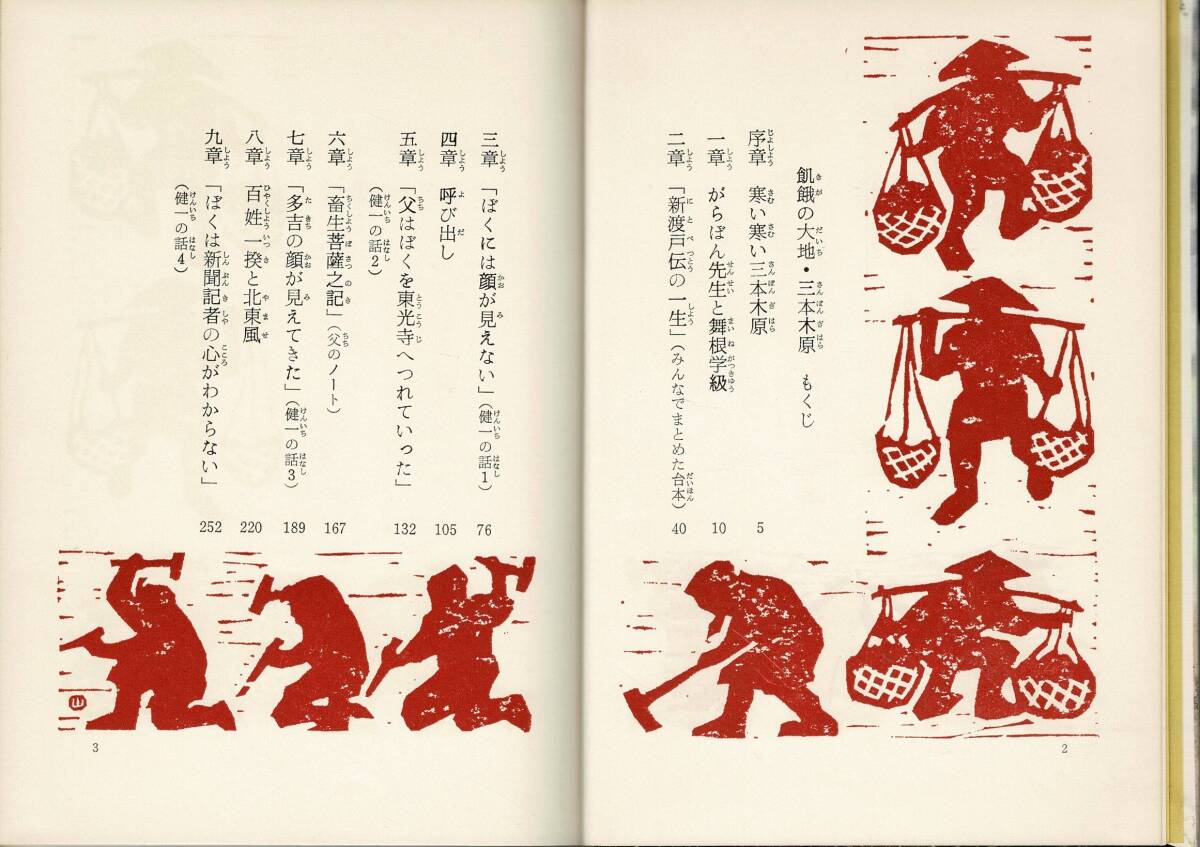 飢餓の大地・三本木原 もくじ
序章 寒い寒い三本木原 5
一章 がらぽん先生と舞根学級 10
二章 「新渡戸伝の一生」(みんなでまとめた台本) 40
三章 「ぼくには顔が見えない」(健一の話1) 76
四章 呼び出し 105
五章 「父はぼくを東光寺へつれていった」 132
(健一の話2)
六章 「畜生菩薩之記」(父のノート) 167
七章 「多吉の顔が見えてきた」(健一の話3) 189
八章 百姓一揆と北東風 220
九章 「ぼくは新聞記者の心がわからない」 252
(健一の話4)
2
3